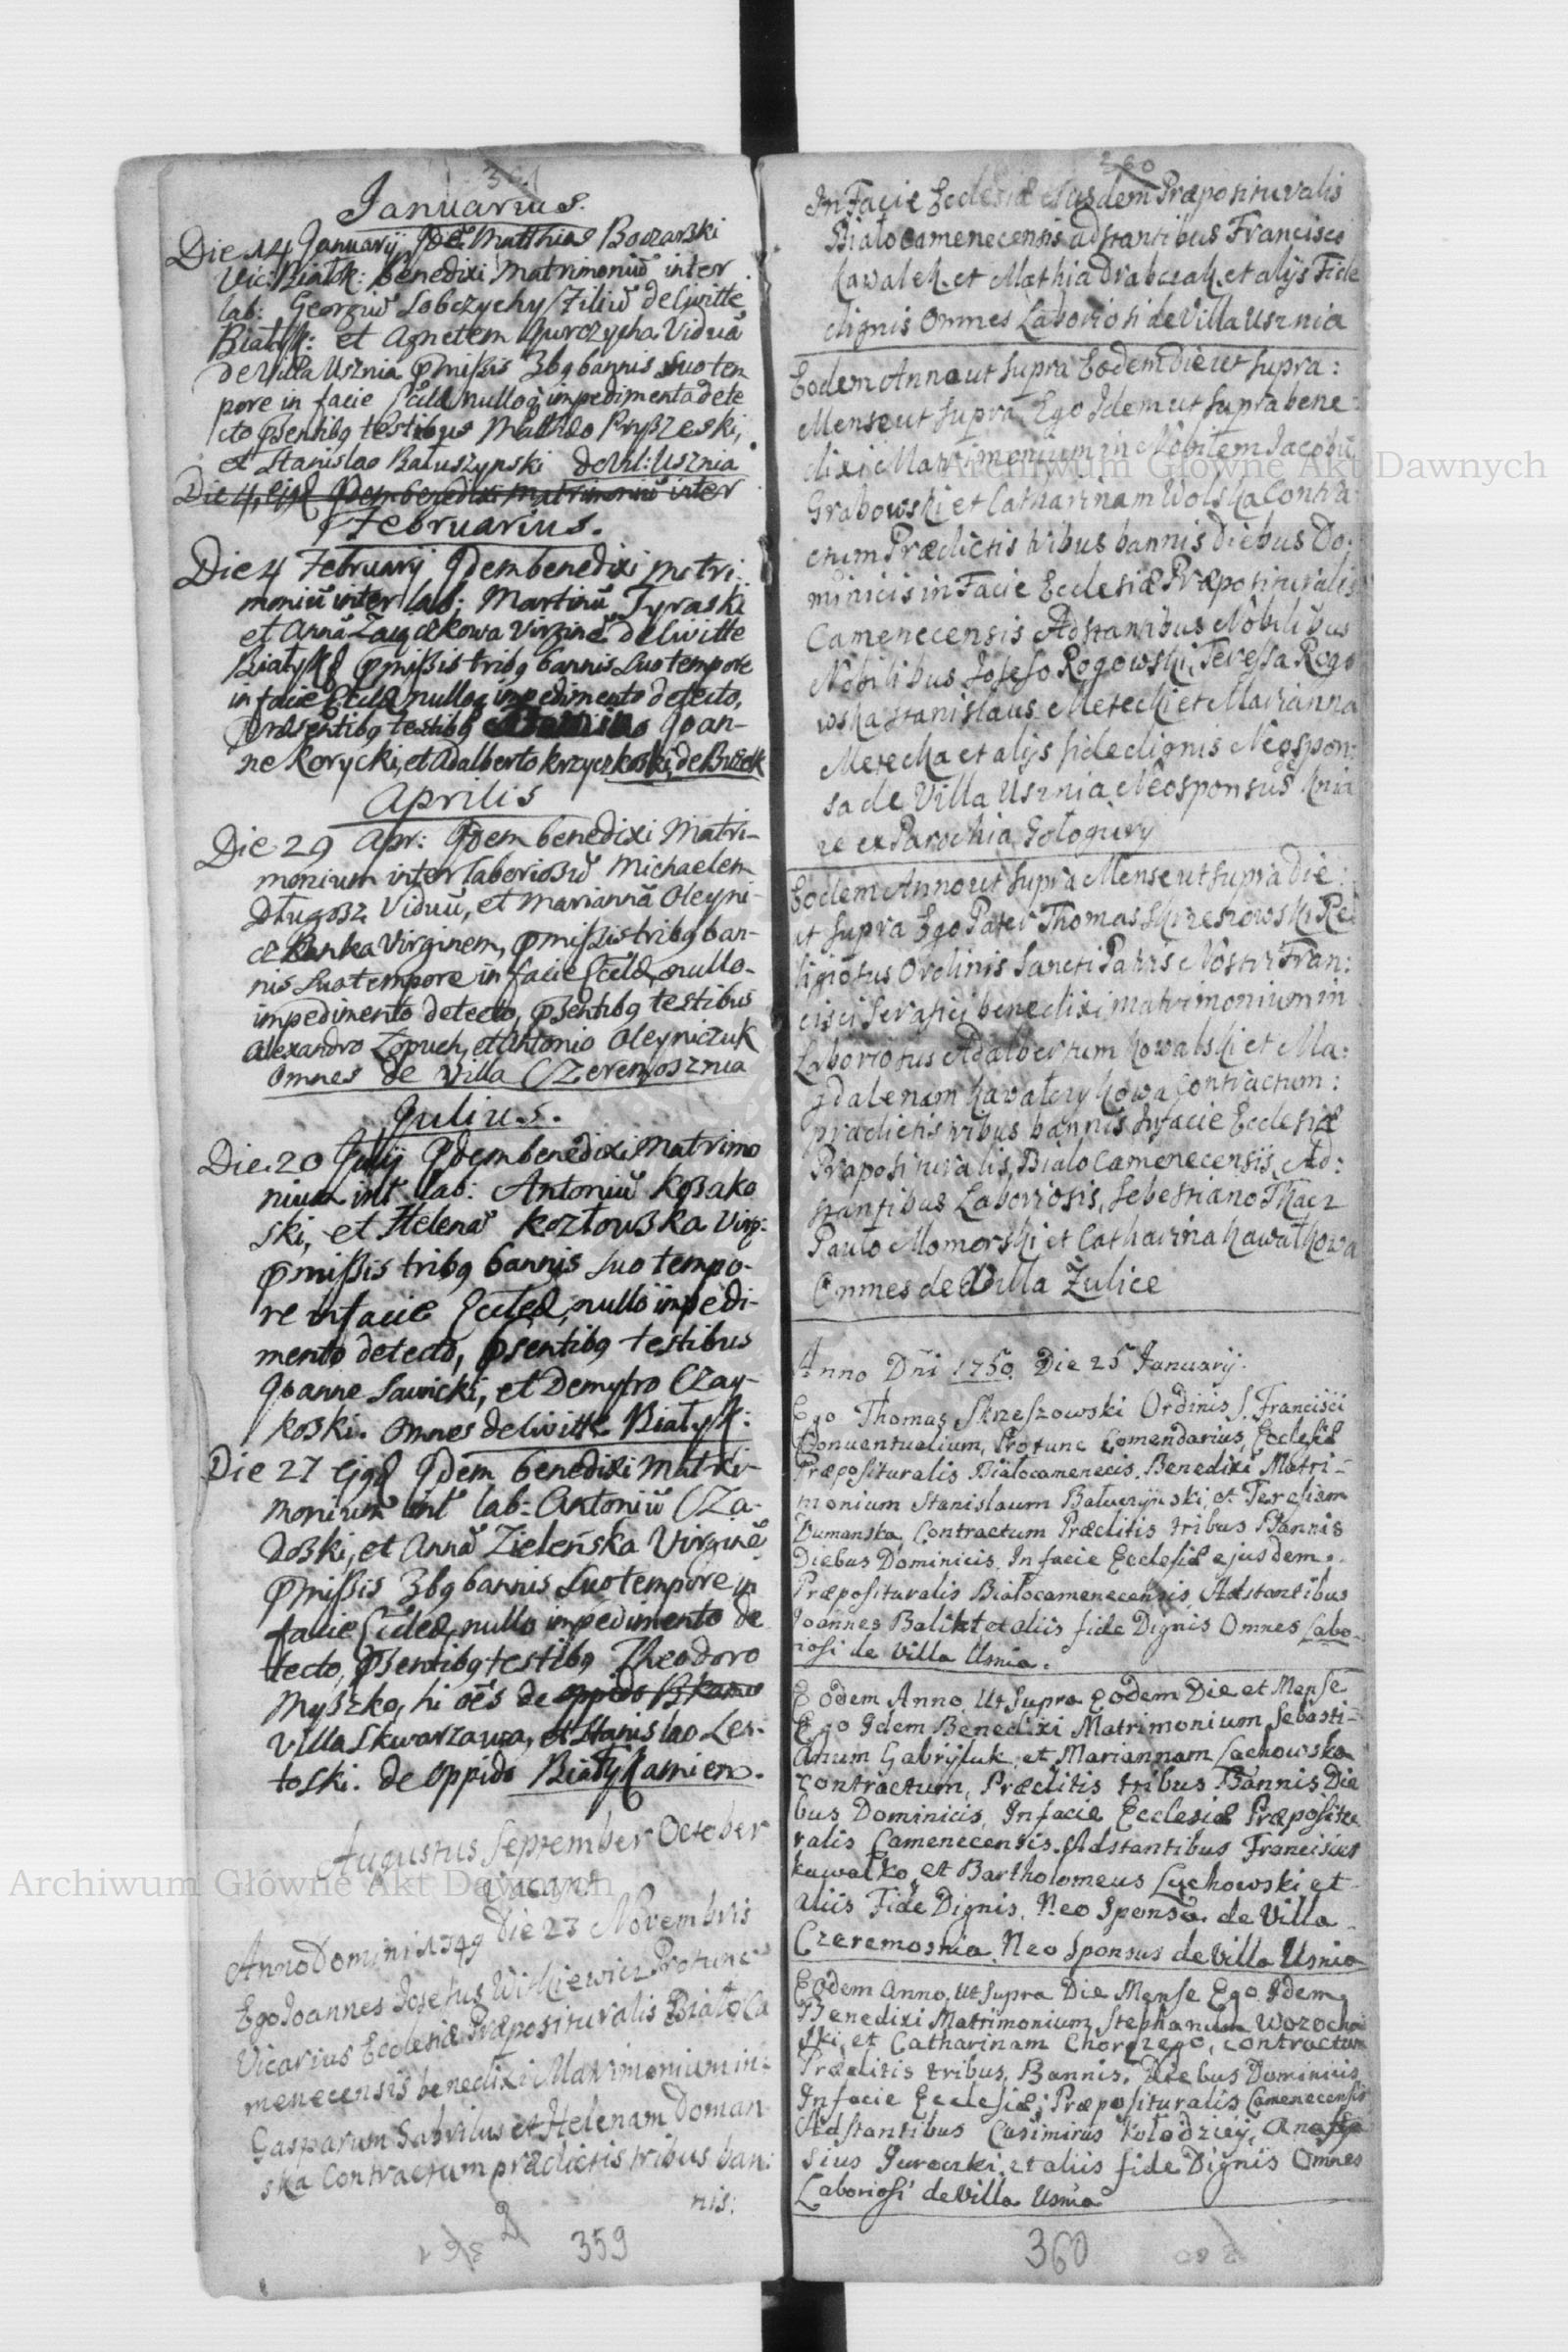 361
Januarius.
Die 14 Januarij Idē Matthias Boczarski
Vic: Białk: benedixi matrimoniū inter
lab: Georgiū Lobczychy filiū de Civitte
Białyk: et Agnetem Gurczycha Viduā
de Villa Usznia pmissis 3bq bannis suo tem
pore in facie Eccla nulloq impedimento dete
cto psentibq testibus Matheo Pryszeski,
et Stanislao Batuszynski de Vil: Usznia
Die 4, ejqd Idem benedixi matrimoniū inter
Februarius.
Die 4 February Idem benedixi matri
moniū inter lab; Martinū Tyraski
et Annā Zaiączkowa Virginē de Civitte
Białyk pmissis tribq bannis suo tempore
in facie Eccla nulloq impedimento detecto,
præsentibq testibq Joan-
ne Korycki, et Adalberto Krzyczkoski, de Buzek
Aprilis
Die 29 Apr: Idem benedixi Matri-
monium inter laboriosū Michaelem
Długosz Viduū, et Mariannā Oleyni-
czanka Virginem, pmissis tribq ban-
nis suo tempore in facie Eccla, nullo-
impedimento detecto, psentibq testibus
Alexandro Łopuch, et Antonio Oleyniczuk
omnes de Villa Czeremosznia
Julius.
Die 20 Julij Idem benedixi Matrimo
nium int lab: Antoniū Kozako
ski, et Helenā Kozłowska Virg:
pmissis tribq bannis suo tempo-
re in facie Eccla, nullo impedi-
mento detecto, psentibq testibus
Joanne Sawicki, et Demytro Czay-
koski. omnes de Civitte Białyk:
Die 27 ejqd Idem benedixi Matri-
monium int lab: Antoniū Cza-
doski, et Annā Zieleńska Virginē
pmissis 3bq bannis suo tempore in
facie Eccla, nullo impedimento de
tecto, psentibq testibq Theodoro
Myszko, hi oēs de oppido
Villa Skwarzawa, et Stanislao Les-
toski. de oppido Białykamień.
Augustus September October
Vacant
Anno Domini 1749 Die 23 Novembris
Ego Joannes Josefus Witkiewicz Protunc
Vicarius Ecclesiæ Præposituralis BiałoCa
menecensis benedixi Matrimonium in:
Gasparum Gabrilus et Helenam Doman
ska Contractum prædictis tribus ban:
nis:
359
360
In Facie Ecclesiæ ejusdem Præposituvalis
Bialocamenecensis adstantibus Francisco
Kawalek et Mathia Drabczak et alys Fide
dignis Omnes Laboriosi de Villa Usznia
Eodem Anno ut supra Eodem die ut supra:
Mense ut supra Ego Idem ut supra bene:
dixi Matrimonium in Nobilem Jacobū
Grabowski et Catharinam Wolska Contra:
ctum Prædictis tribus bannis diebus Do:
minicis in Facie Ecclesiæ Præposituralis
Camenecensis Adstantibus Nobilibus
Nobilibus Josefo Rogowski, Teressa Rogo
wska Stanislaus Metecki et Marianna
Metecka et alys fidedignis Neospon:
sa de Villa Usznia Neosponsus Knia
ze ex Parochia Gołogury
Eodem Anno ut supra Mense ut supra die:
ut supra Ego Pater Thomas Skrzeszowski Re:
ligiosus Ordinis Sancti Patris Nostri Fran:
cisci Serafici benedixi matrimonium in
Laboriosus Adalbertum Kowalski et Ma:
gdalenam Kawałczykowa Contractum:
prædictis tribus bannis in facie Ecclesiæ
Præposituralis, Bialocamenecensis, Ad:
stantibus Laboriosis, Sebestiano Tkacz
Pauło Momorski et Catharina Kawałkowa
Omnes de Villa Żulice
Anno Dñi 1750. Die 25 Januarij.
Ego Thomas Skrzeszowski Ordinis S. Francisci
Conventualium, Protunc Comendarius, Ecclesiæ
Præposituralis Białocamenecis. Benedixi Matri-
monium Stanislaum Bałuczÿnski, et Teresiam
Dumanska, Contractum Præditis tribus Bannis
Diebus Dominicis. In facie Ecclesiæ ejusdem.
Præposituralis Białocamenecensis, Adstantibus
Joannes Balikt, et aliis fide Dignis Omnes Labo-
riosi de Villa Usnia.
Eodem Anno, Ut Supra Eodem Die et Mense
Ego Idem Benedixi Matrimonium Sebasti-
anum Gabrijluk, et Mariannam Lachowska
contractum, Præditis tribus Bannis Die
bus Dominicis, In facie Ecclesiæ Præpositu
ralis Camenecensis. Adstantibus Francisius
kawalko, et Bartholomeus Lychowski et
aliis Fide Dignis. Neo Sponsa. de Villa
Czeremosnia. Neo Sponsus de Villa Usnia
Eodem Anno, Ut Supra Die Mense Ego Idem
Benedixi Matrimonium, Stephanum Wozocho
ski, et Catharinam Chorązego, contractum
Prædlitis tribus, Bannis. Diebus Dominicis
In facie Ecclesiæ, Præposituralis Camenecensis
Adstantibus Casimirus Kołodziey, Anasta
sius Juroczki, et aliis fide Dignis Omnes
Laboriosi de Villa Usnia
360
Archiwum Główne Akt Dawnych
Archiwum Główne Akt Dawnych